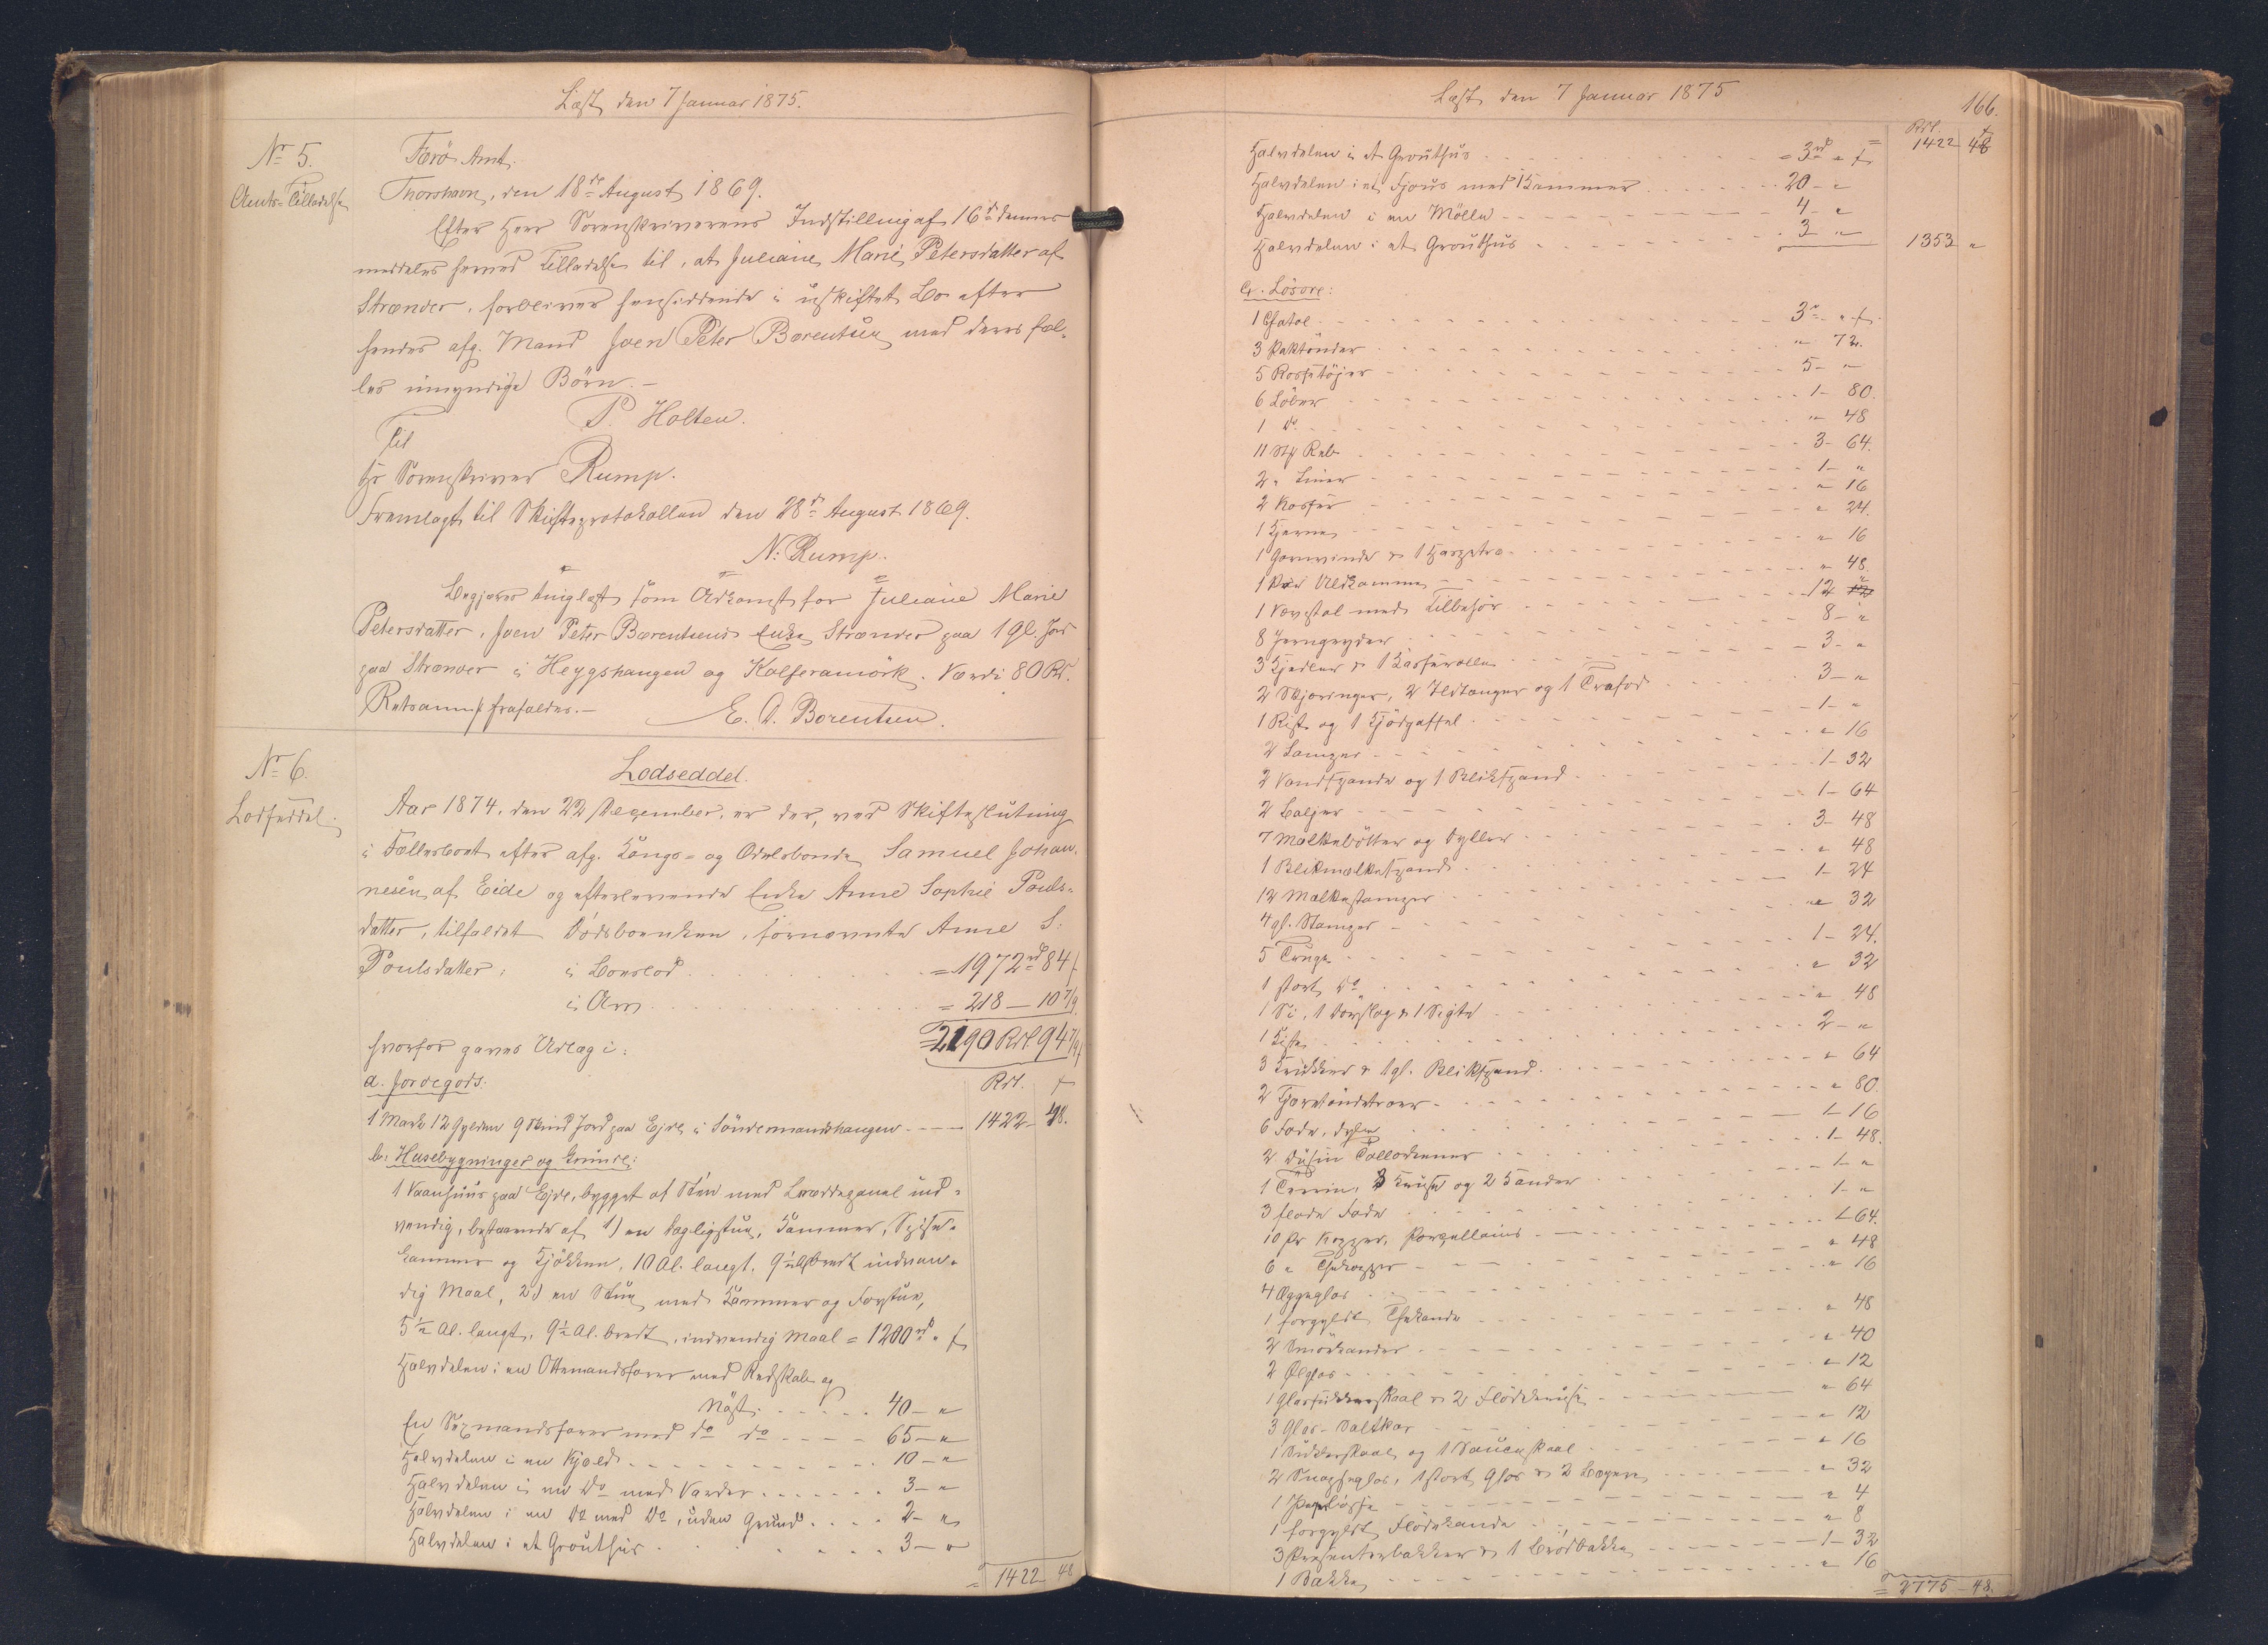 Læst den 7 Januar 1875.
No 5.
Amts-Tilladelse
Færø Amt.
Thorshavn, den 18de August 1869.
Efter Herr Sorenskriverens Indstilling af 16de dennes
meddeles herved Tilladelse til, at Juliane Marie Petersdatter af
Strænder, forbliver hensiddende i uskiftet Bo efter
hendes afg. Mand Joen Peter Bærentsen med deres fæl-
les umyndige Børn.-
P. Holten.
Til
Hr Sorenskriver Rump.
Fremlagt til Skifteprotokollen den 28de August 1869.
N: Rump.
Begjæres tinglæst som Adkomst for Juliane Marie
Petersdatter, Joen Peter Bærentsens Enke Strænder paa 1 Gl. Jord
paa Strænder i Heygshaugen og Kalferamörk. Værdi 80 Rd.
Retsanmk frafaldes.-
E. A. Bærentsen.
No 6.
Lodseddel.
Lodseddel.
Aar 1874, den 22 December, er der, ved Skifteslutning
i Fællesboet efter afg. Kongs- og Odelsbonde Samuel Johan-
nesen af Eide og efterlevende Enke Anne Sophie Pouls-
datter, tilfaldet Dødsboenken, fornævnte Anne S.
Poulsdatter: i Boeslod = 1972rd 84f
i Arv = 218 - 10 7/9
= 2190 Rdl 94 7/9f
hvorfor gaves Udlæg i:
a. Jordegods: Rdl. f
1 Mark 12 Gylden 9 Skind Jord paa Ejde i Söndermandshaugen 1422 - 48.
b: Husebygninger og Grunde:
1 Vaanhuus paa Ejde, bygget af Sten med Bræddepanel ind-
vendig, bestaaende af 1) en Dagligstue, Kammer, Spise-
kammer og Kjökken, 10 Al. langt, 9½ Al. bredt indven-
dig Maal, 2) en Stue med Kammer og Forstue,
5½ Al. langt, 9½ Al. bredt, indvendig Maal = 1200rd " f
Halvdelen i en Ottemandsfarer med Redskab og
Nöst 40 - "
En Sexmandsfarer med do do 65 - "
Halvdelen i en Kjeld 10 - "
Halvdelen i en Do med 3 - "
Halvdelen i en Do med Do, uden Grund 2 - "
Halvdelen i et Grouthus 3 - "
= 1422 48
Læst den 7 Januar 1875
166.
Rdl. f
= 1422 48
Halvdelen i et Grouthus = 3rd " f
Halvdelen i et Fjous med 1 Kammer 20 - "
Halvdelen i en Mölle 4 - "
Halvdelen i et Grouthus 3 " 1353 "
c. Lösöre:
1 Chatol 3 - " f.
3 " 72.
5 5 - "
6 Löber 1 - 80.
1 do " 48
11 Stk Reb 3 - 64.
2 " Liner 1 - "
2 " 16
1 Kjerne " 24.
1 Garnvinde & 1 " 16
1 Par Uldkamme " 48
1 Vævstol med Tilbehör 12 "
8 Jerngryder 8 - "
3 Kjedler & 1 3 - "
2 Skjæringer, 2 Ildtanger og 1 Trafod 3 - "
1 Rist og 1 Kjödgaffel 1 - "
2 Lamper " 16
2 Vandspande og 1 Blikspand 1 - 32
2 Baljer 1 - 64
7 Malkebötter og Dyller 3 - 48
1 Blikmalkespand " 48
12 Malkestamper 1 - 24
4 gl. Stamper " 32
5 Truge 1 - 24.
1 stort Do " 32
1 Si, 1 Dørslag & 1 Sigte " 48
1 Kiste 2 - "
3 Krukker & 1 gl. Blikspand " 64
2 " 80
6 Fade, dybe 1 - 16
2 Dusin Tallerkener 1 - 48.
1 Terrin, 3 Kruse og 2 Kander 1 - "
3 flade Fade 1 - "
10 Pr Kopper, Porcellains 1 - 64.
6 " Thekopper " 48
4 Æggeglas " 16
1 forgyldt Thekande " 48
2 Smörkander " 40
2 Ølglas " 12
1 Glassukkerskaal & 2 Flödekruse " 64
3 Glas-Saltkar " 12
1 Sukkerskaal og 1 Sauceskaal " 16
2 Snapseglas, 1 stort Glas & 2 Bægere " 32
1 Peberbösse " 4
1 forgyldt Flödekande " 8
3 Presenterbakker & 1 Brödbakke 1 - 32
1 Bakke " 16
= 2775 - 48.